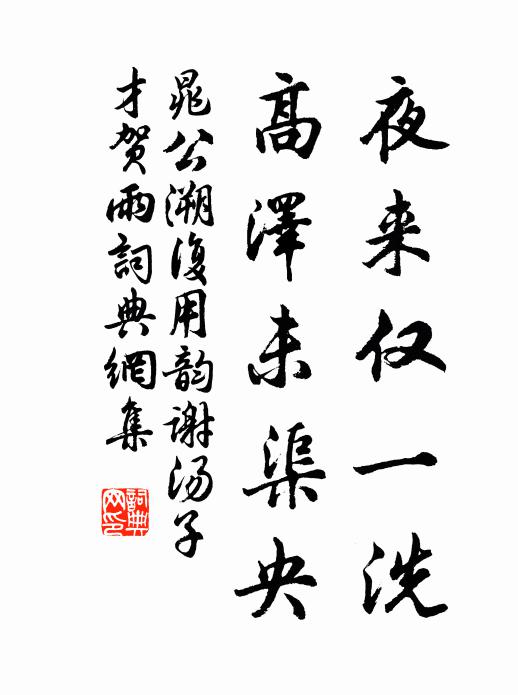 夜来仅一洗
高澤未渠央
晁公溯復用韵谢汤子
才贺雨詞典網集
詞典网印